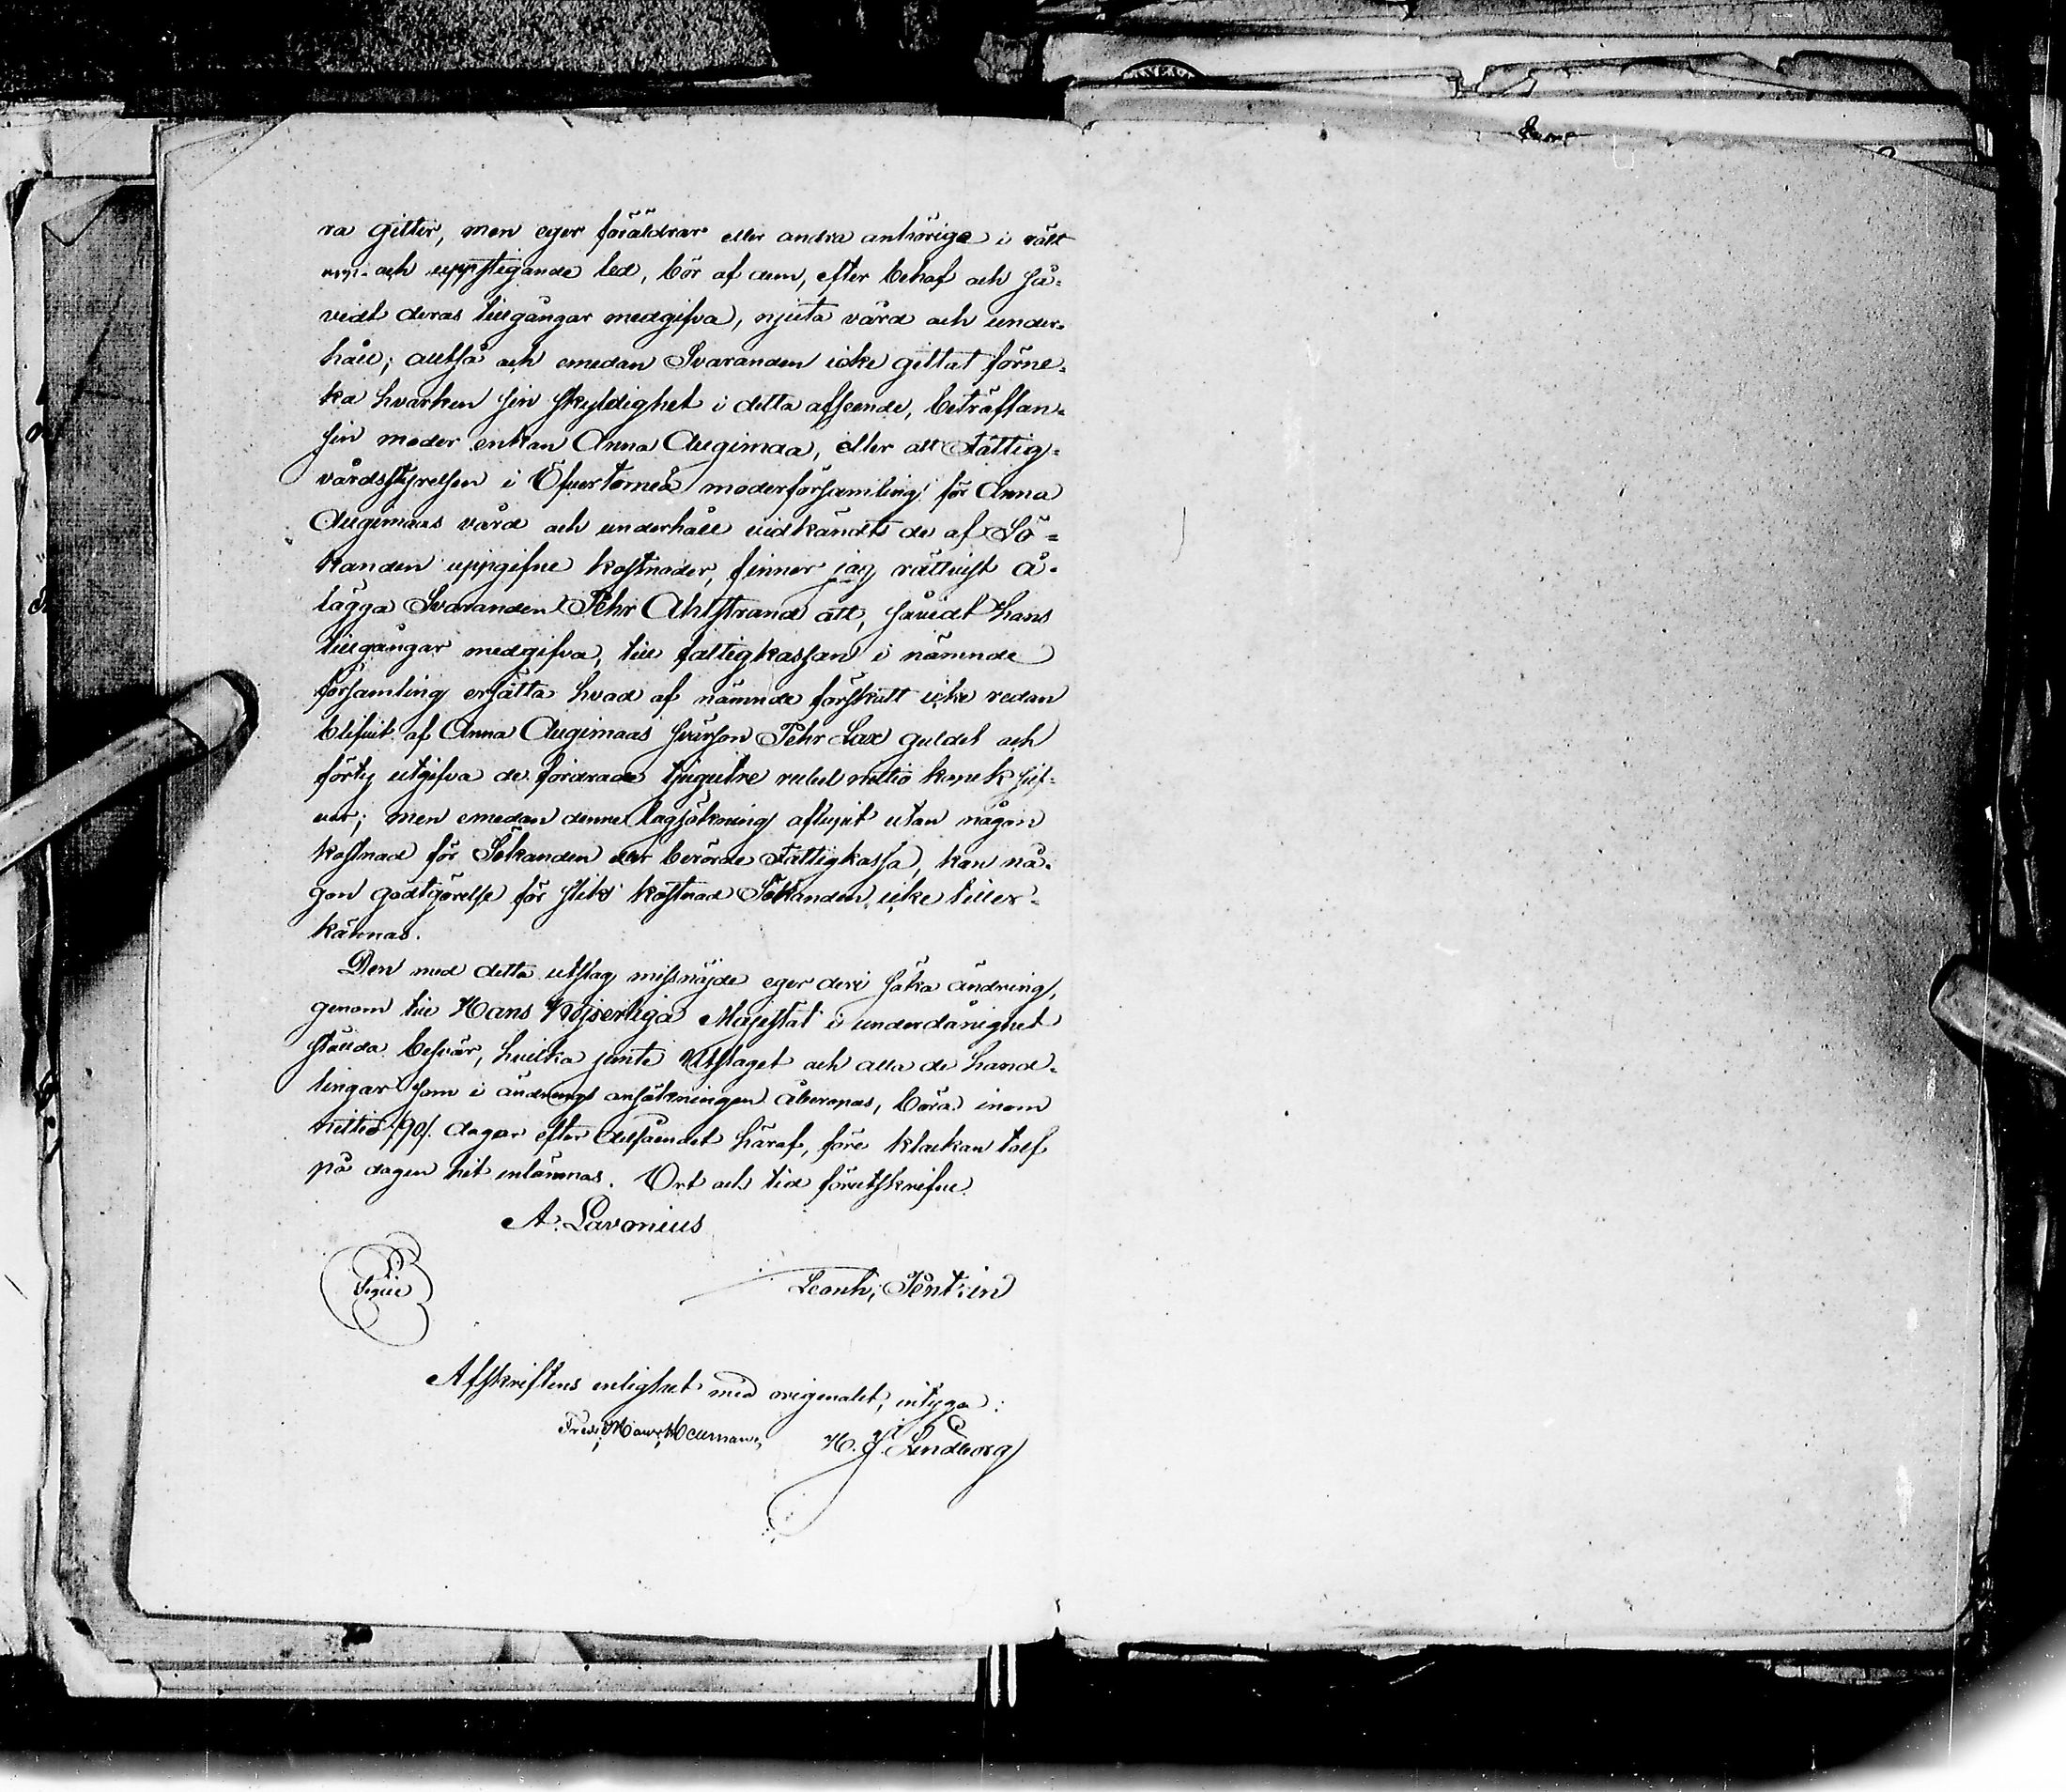 ra gitter, men eger föräldrar eller andra anhörige i rätt
ner- och uppstigande led, bör af dem, efter behof och så-
vidt deras tillgångar medgifva, njuta vård och under-
håll; alltså och emedan Svaranden icke gittat förne-
ka hvarken sin skyldighet i detta afseende, beträffan-
sin moder enkan Anna Augimaa, eller att Fattig-
vårdsstyrelsen i Öfvertorneå moderförsamling för Anna
Augimaas vård och underhåll vidkändts de af Sö=
kanden uppgifne kostnader, finner jag rättvist å-
lägga Svaranden Pehr Ahlstrand att, såvidt hans
tillgångar medgifva, till fattigkassan i nämnde
församling ersätta hvad af nämnde förskott icke redan
blifvit af Anna Augimaas svärson Pehr Lax guldet och
förty utgifva de fordrade tjugutre rubel nittio kopek silf-
ver; men emedan denne lagsökning aflupit utan någon
kostnad för Sökanden eller berörde Fattigkassa, kan nå-
gon godtgörelse för slik kostnad Sökanden icke tiller-
kännas.
Den med detta utslag missnöjde eger deri söka ändring,
genom till Hans Kejserliga Majestät i underdånighet
stälda besvär, hvilka jemte Utslaget och alla de hand-
lingar som i ändrings ansökningen åberopas, böra inom
nittio /90/. dagar efter delfåendet häraf, före klockan tolf
på dagen hit inlämnas. Ort och tid förutskrifne.
A. Lavonius
Sigill
Leonh; Pentzin
Afskriftens enlighet med originalet, intyga:
H. J. Lindborg